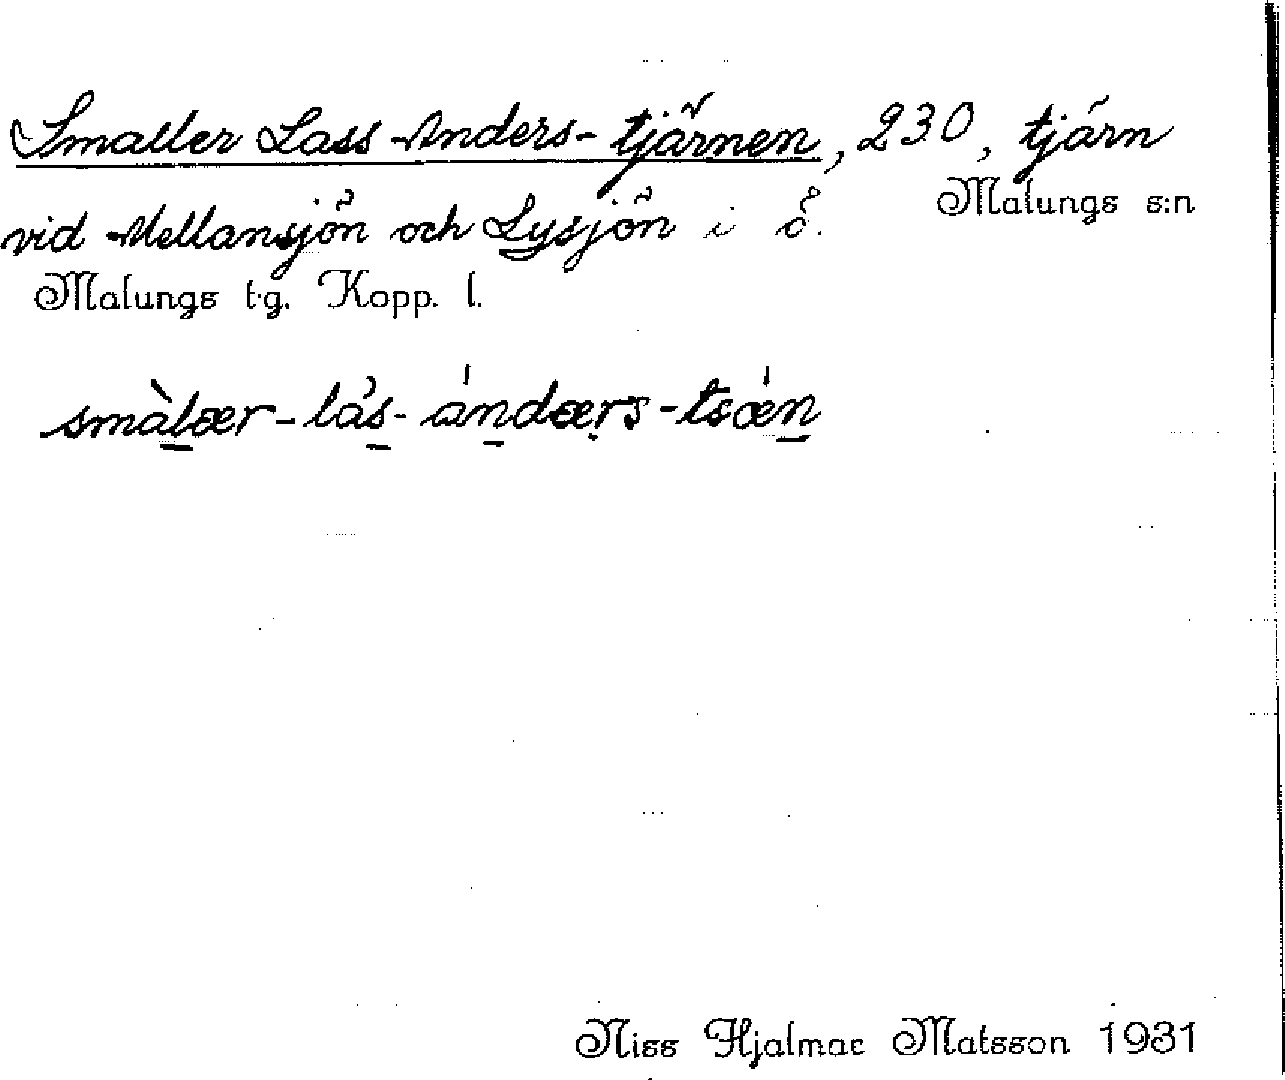 Smaller Lass-Anders-tjärnen, 230, tjärn
Malungs s:n
vid Mellansjön och Lysjön i ö.
Malungs t.g. Kopp. l.
smàlær-lás-ándærs-tsǽn
Niss Hjalmar Matsson 1931